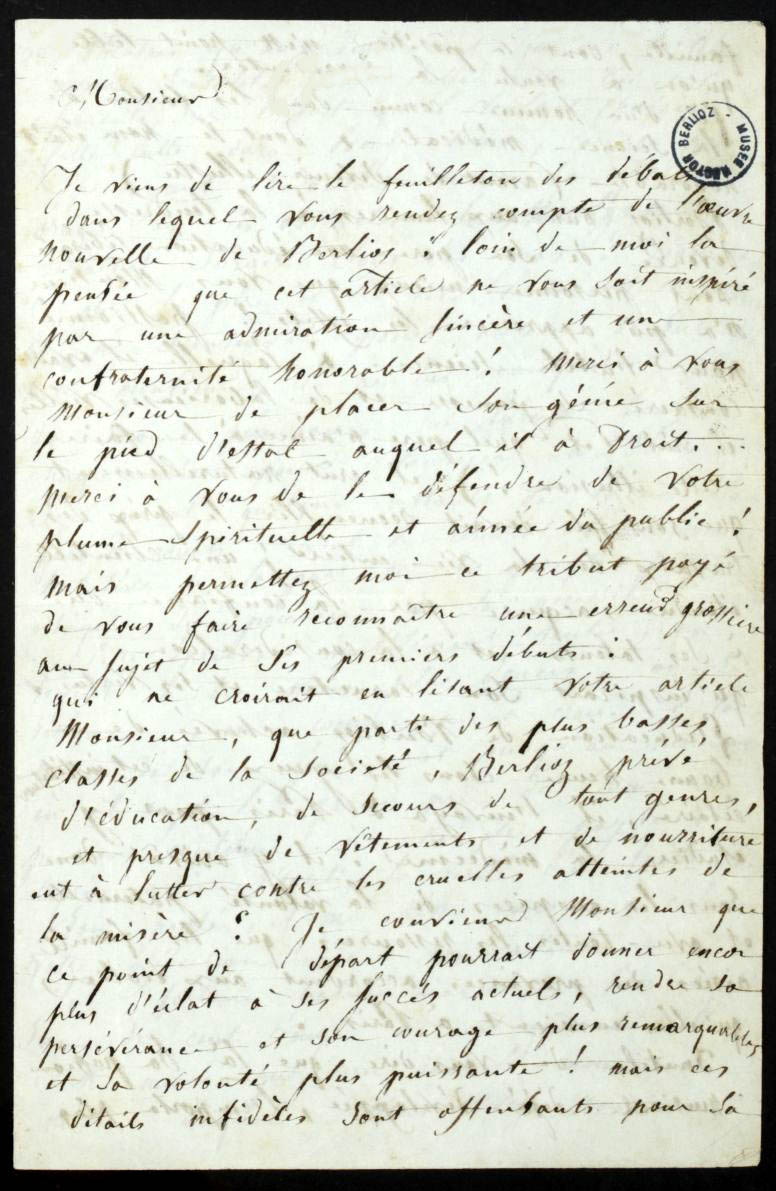 Monsieur
MUSÉE HECTOR BERLIOZ -
Je viens de lire le feuilleton des débats
dans lequel vous rendez compte de l'œuvre
nouvelle de Berlios : loin de moi la
pensée que cet article ne vous soit inspiré
par une admiration sincère et une
confraternité honorable ! merci à vous
Monsieur de placer son génie sur
le pied d'estal auquel il à Droit...
merci à vous de le défendre de votre
plume spirituelle et aimée du public !
mais permettez moi ce tribut payé
de vous faire reconnaître une erreur grossière
au sujet de ses premiers débuts :
qui ne croirait en lisant votre article
Monsieur, que parti des plus basses
classes de la société, Berlioz privé
d'éducation, de secours de tout genres,
et presque de vêtements et de nourriture
eut à lutter contre les cruelles atteintes de
la misère ? Je conviens Monsieur que
ce point de départ pourrait donner encor
plus d'éclat à ses succès actuels, rendre sa
persévérance et son courage plus remarquables
et sa volonté plus puissante ! mais ces
détails infidèles sont offensants pour sa